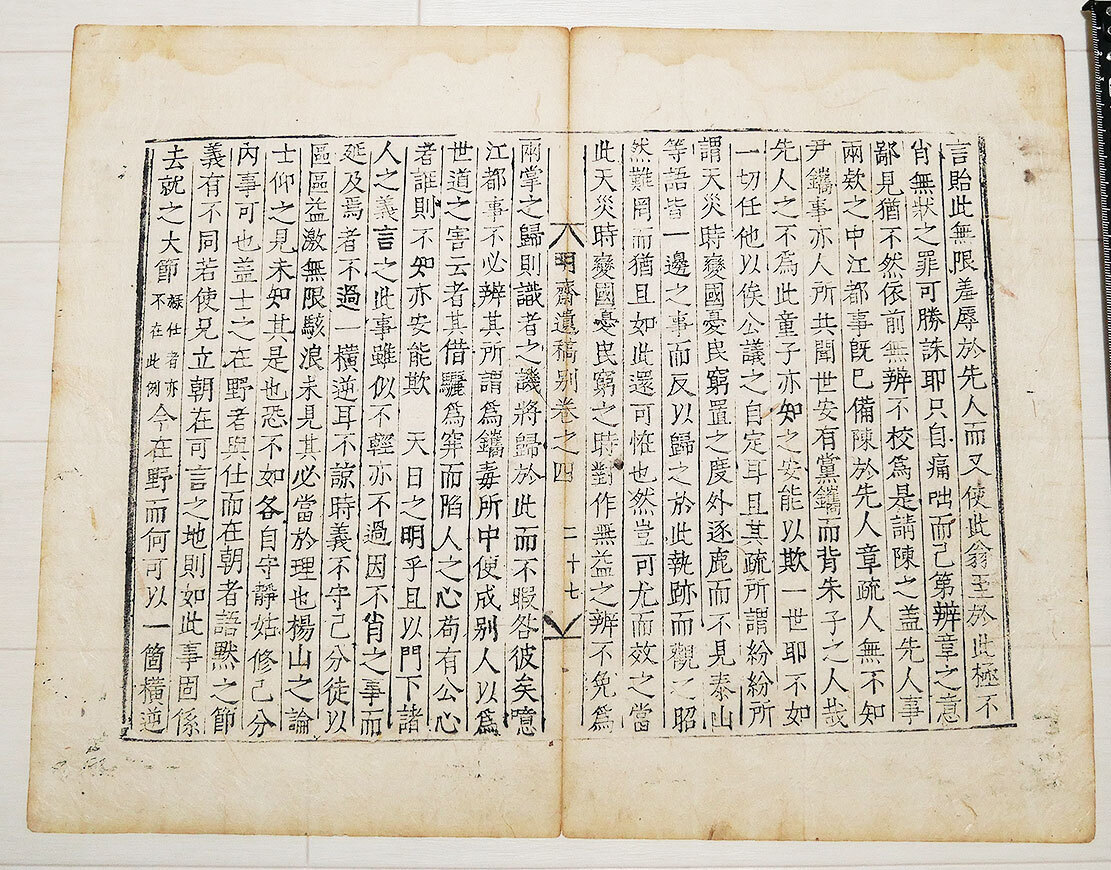 言貽此無限羞辱於先人而又使此翁至於此極不
肖無狀之罪可勝誅耶只自痛咄而已第辨章之意
鄙見猶不然依前無辨不校爲是請陳之盖先人事
兩欵之中江都事旣已備陳於先人章疏人無不知
尹鑴事亦人所共聞世安有黨鑴而背朱子之人哉
先人之不爲此童子亦知之安能以欺一世耶不如
一切任他以俟公議之自定耳且其疏所謂紛紛所
謂天災時變國憂民窮置之度外逐鹿而不見泰山
等語皆一邊之事而反以歸之於此執跡而觀之昭
然難罔而猶且如此還可恠也然豈可尤而效之當
此天災時變國憂民窮之時對作無益之辨不免爲
明齋遺稿别卷之四 二十七
兩掌之歸則識者之譏將歸於此而不暇咎彼矣噫
江都事不必辨其所謂爲鑴毒所中便成别人以爲
世道之害云者其借驪爲穽而陷人之心苟有公心
者誰則不知亦安能欺 天日之明乎且以門下諸
人之義言之此事雖似不輕亦不過因不肖之事而
延及焉者不過一橫逆耳不諒時義不守己分徒以
區區益激無限駭浪未見其必當於理也楊山之論
士仰之見未知其是也恐不如各自守靜姑修己分
內事可也盖士之在野者與仕而在朝者語默之節
義有不同若使兄立朝在可言之地則如此事固係
去就之大節蔭仕者亦不在此例今在野而何可以一箇橫逆